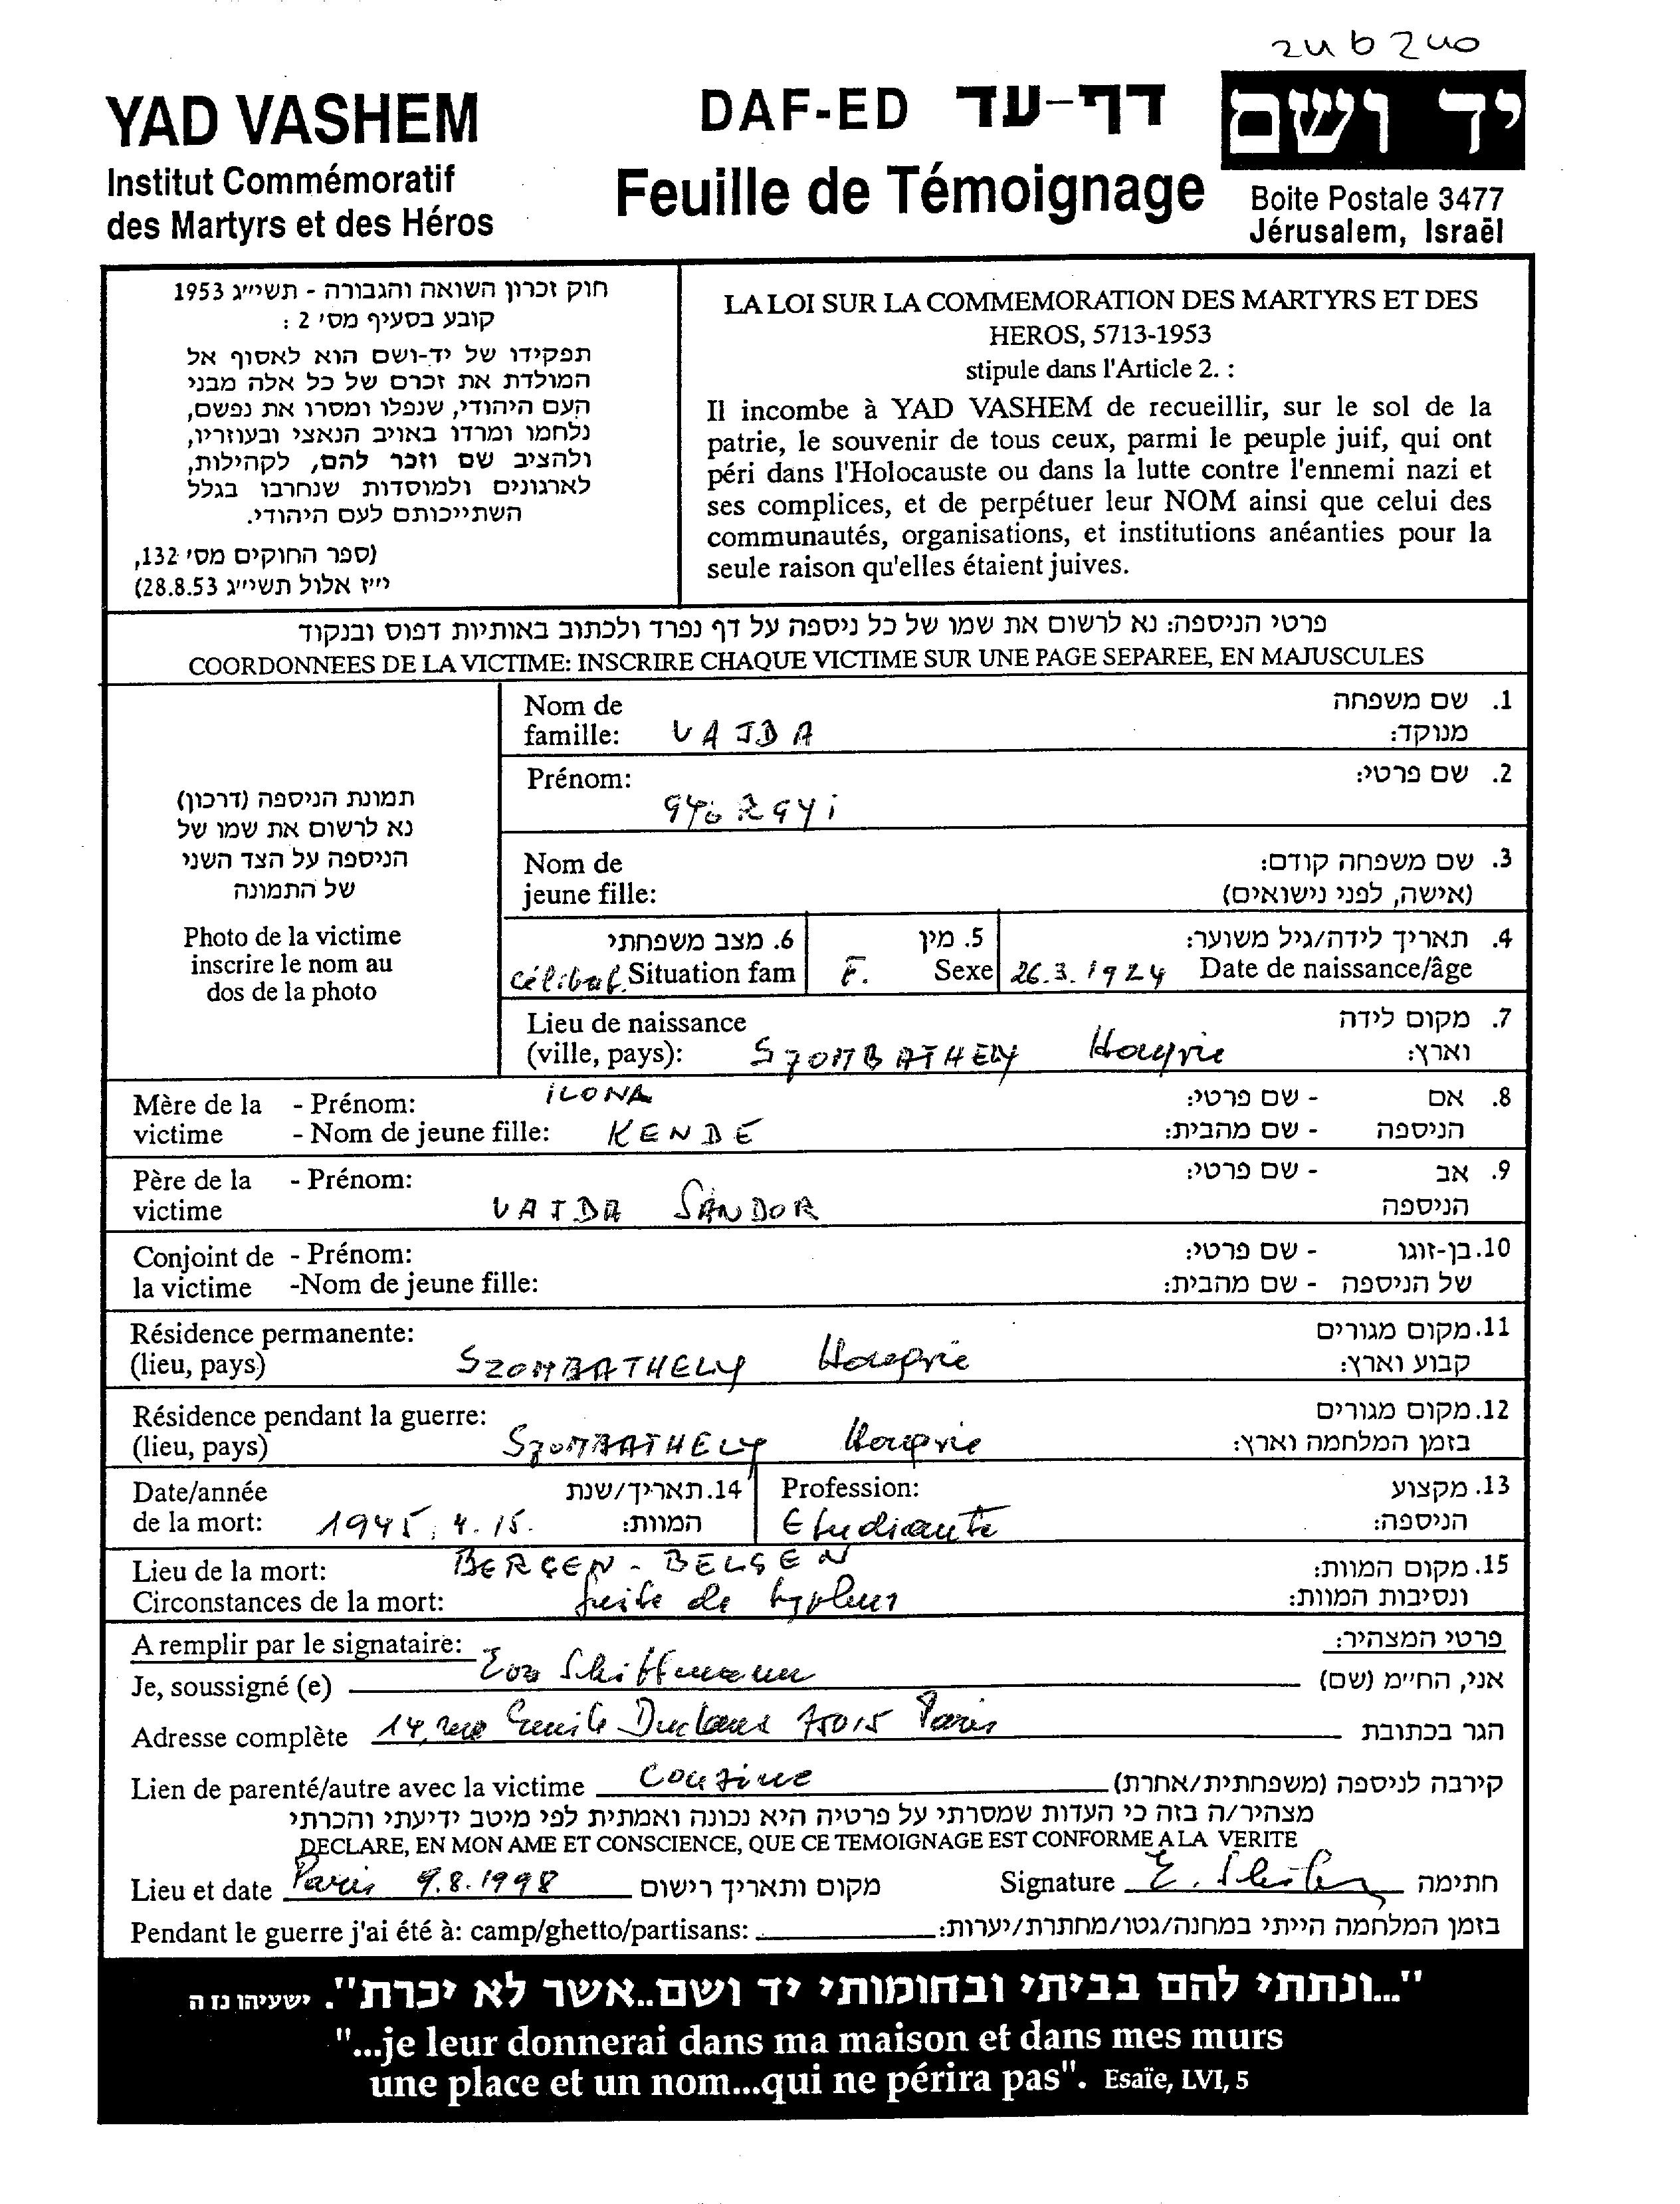 YAD VASHEM
Institut Commémoratif
des Martyrs et des Héros
DAF-ED דף-עד
Feuille de Témoignage
יד ושם
Boite Postale 3477
Jérusalem, Israël
חוק זכרון השואה והגבורה - תשי״ג 1953
קובע בסעיף מס׳ 2 :
תפקידו של יד-ושם הוא לאסוף אל
המולדת את זכרם של כל אלה מבני
העם היהודי, שנפלו ומסרו את נפשם,
נלחמו ומרדו באויב הנאצי ובעוזריו,
ולהציב שם וזכר להם, לקהילות,
לארגונים ולמוסדות שנחרבו בגלל
השתייכותם לעם היהודי.
(ספר החוקים מס׳ 132,
י״ז אלול תשי״ג 28.8.53)
LA LOI SUR LA COMMEMORATION DES MARTYRS ET DES
HEROS, 5713-1953
stipule dans l'Article 2. :
Il incombe à YAD VASHEM de recueillir, sur le sol de la
patrie, le souvenir de tous ceux, parmi le peuple juif, qui ont
péri dans l'Holocauste ou dans la lutte contre l'ennemi nazi et
ses complices, et de perpétuer leur NOM ainsi que celui des
communautés, organisations, et institutions anéanties pour la
seule raison qu'elles étaient juives.
פרטי הניספה: נא לרשום את שמו של כל ניספה על דף נפרד ולכתוב באותיות דפוס ובנקוד
COORDONNEES DE LA VICTIME: INSCRIRE CHAQUE VICTIME SUR UNE PAGE SEPAREE, EN MAJUSCULES
תמונת הניספה (דרכון)
נא לרשום את שמו של
הניספה על הצד השני
של התמונה
Photo de la victime
inscrire le nom au
dos de la photo
Nom de 1. שם משפחה
famille: VAJDA מנוקד:
Prénom: 2. שם פרטי:
GYORGYI
Nom de 3. שם משפחה קודם:
jeune fille: (אישה, לפני נישואים)
6. מצב משפחתי 5. מין 4. תאריך לידה/גיל משוער:
Célibat. Situation fam F. Sexe 26.3.1924 Date de naissance/âge
Lieu de naissance 7. מקום לידה
(ville, pays): SZOMBATHELY Hongrie וארץ:
Mère de la - Prénom: ILONA 8. אם - שם פרטי:
victime - Nom de jeune fille: KENDE הניספה - שם מהבית:
Père de la - Prénom: 9. אב - שם פרטי:
victime VAJDA SÁNDOR הניספה
Conjoint de - Prénom: 10. בן-זוגו - שם פרטי:
la victime -Nom de jeune fille: של הניספה - שם מהבית:
Résidence permanente: 11. מקום מגורים
(lieu, pays) SZOMBATHELY Hongrie קבוע וארץ:
Résidence pendant la guerre: 12. מקום מגורים
(lieu, pays) SZOMBATHELY Hongrie בזמן המלחמה וארץ:
Date/année 14. תאריך/שנת Profession: 13. מקצוע
de la mort: 1945. 4. 15. המוות: Etudiante הניספה:
Lieu de la mort: BERGEN - BELSEN 15. מקום המוות:
Circonstances de la mort: suite de typhus ונסיבות המוות:
A remplir par le signataire: פרטי המצהיר:
Je, soussigné (e) Eva Schiffmann אני, החי״מ (שם)
Adresse complète 14, rue Emile Duclaux 75015 Paris הגר בכתובת
Lien de parenté/autre avec la victime Cousine קירבה לניספה (משפחתית/אחרת)
מצהיר/ה בזה כי העדות שמסרתי על פרטיה היא נכונה ואמתית לפי מיטב ידיעתי והכרתי
DECLARE, EN MON AME ET CONSCIENCE, QUE CE TEMOIGNAGE EST CONFORME A LA VERITE
Lieu et date Paris 9.8.1998 מקום ותאריך רישום Signature חתימה
Pendant le guerre j'ai été à: camp/ghetto/partisans: בזמן המלחמה הייתי במחנה/גטו/מחתרת/יערות:
"...ונתתי להם בביתי ובחומותי יד ושם..אשר לא יכרת". ישעיהו נז ה
"...je leur donnerai dans ma maison et dans mes murs
une place et un nom...qui ne périra pas". Esaïe, LVI, 5